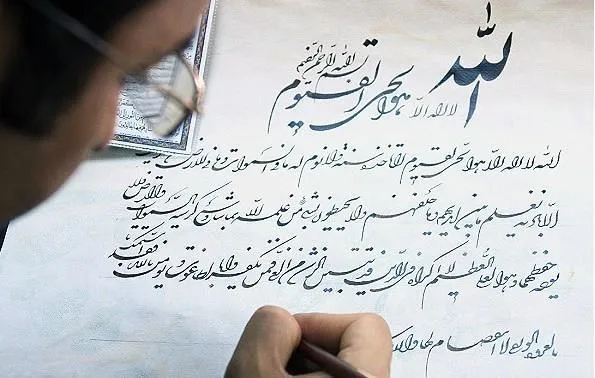 بسم الله الرحمن الرحیم
الله لا اله الا هو الحی القیوم
الله لا اله الا هو الحی القیوم لا تاخذه سنة ولا نوم له ما فی السموات وما فی الارض
الا باذنه یعلم ما بین ایدیهم وما خلفهم ولا یحیطون بشیء من علمه الا بما شاء وسع کرسیه السموات والارض ولا
یوده حفظهما وهو العلی العظیم لا اکراه فی الدین قد تبین الرشد من الغی فمن یکفر بالطاغوت ویومن بالله فقد استمسک
بالعروة الوثقی لا انفصام لها والله